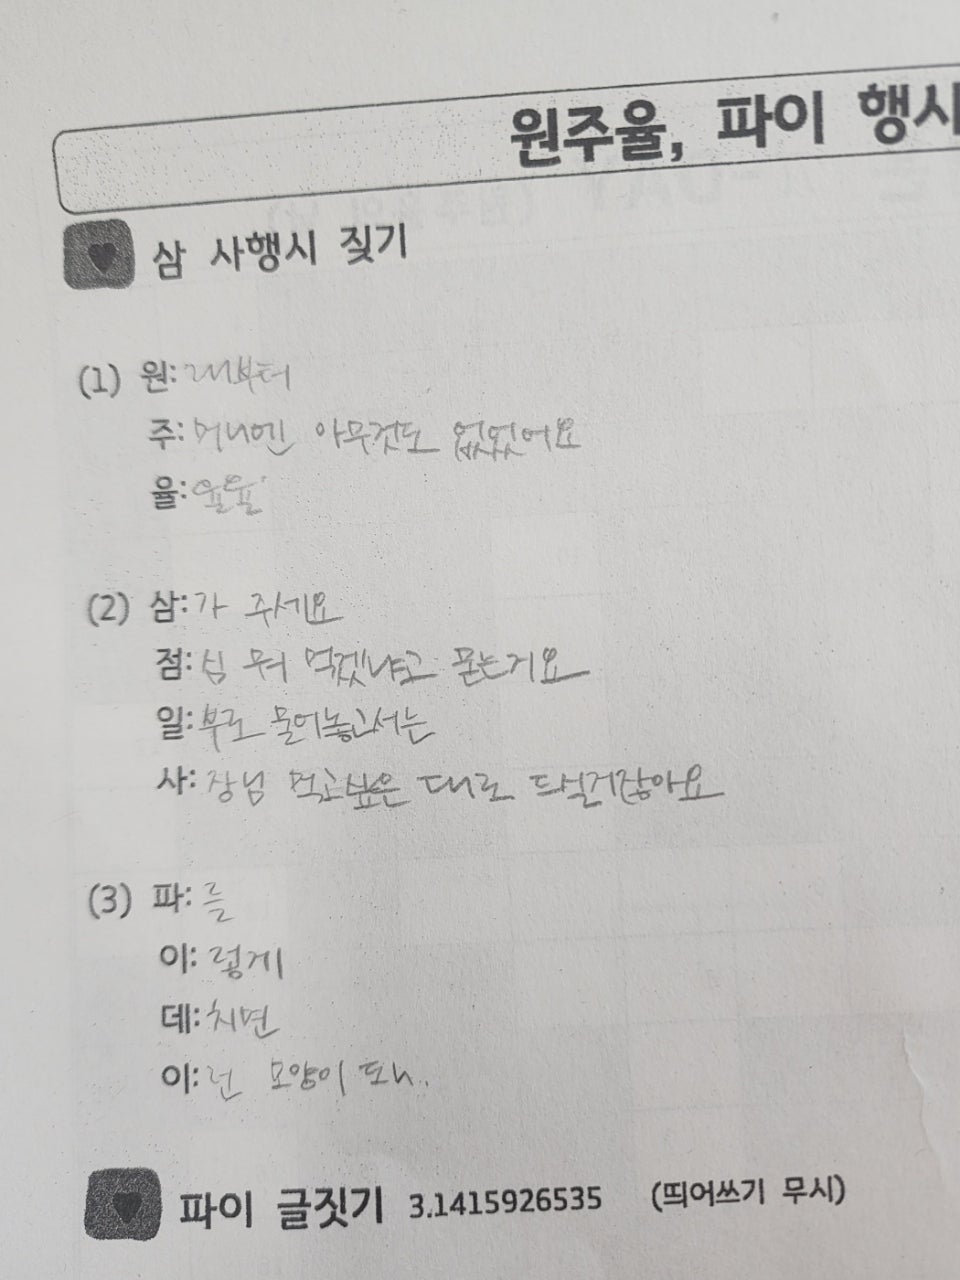 원주율, 파이 행시
삼 사행시 짖기
(1) 원: 래부터
주: 머니엔 아무것도 없었어요
율: 율율
(2) 삼: 가 주세요
점: 심 뭐 먹겠냐고 묻는거요
일: 부러 물어놓고서는
사: 장님 먹고싶은 대로 드실거잖아요
(3) 파: 를
이: 렇게
데: 치면
이: 런 모양이 돼..
파이 글짓기 3.1415926535 (띄어쓰기 무시)